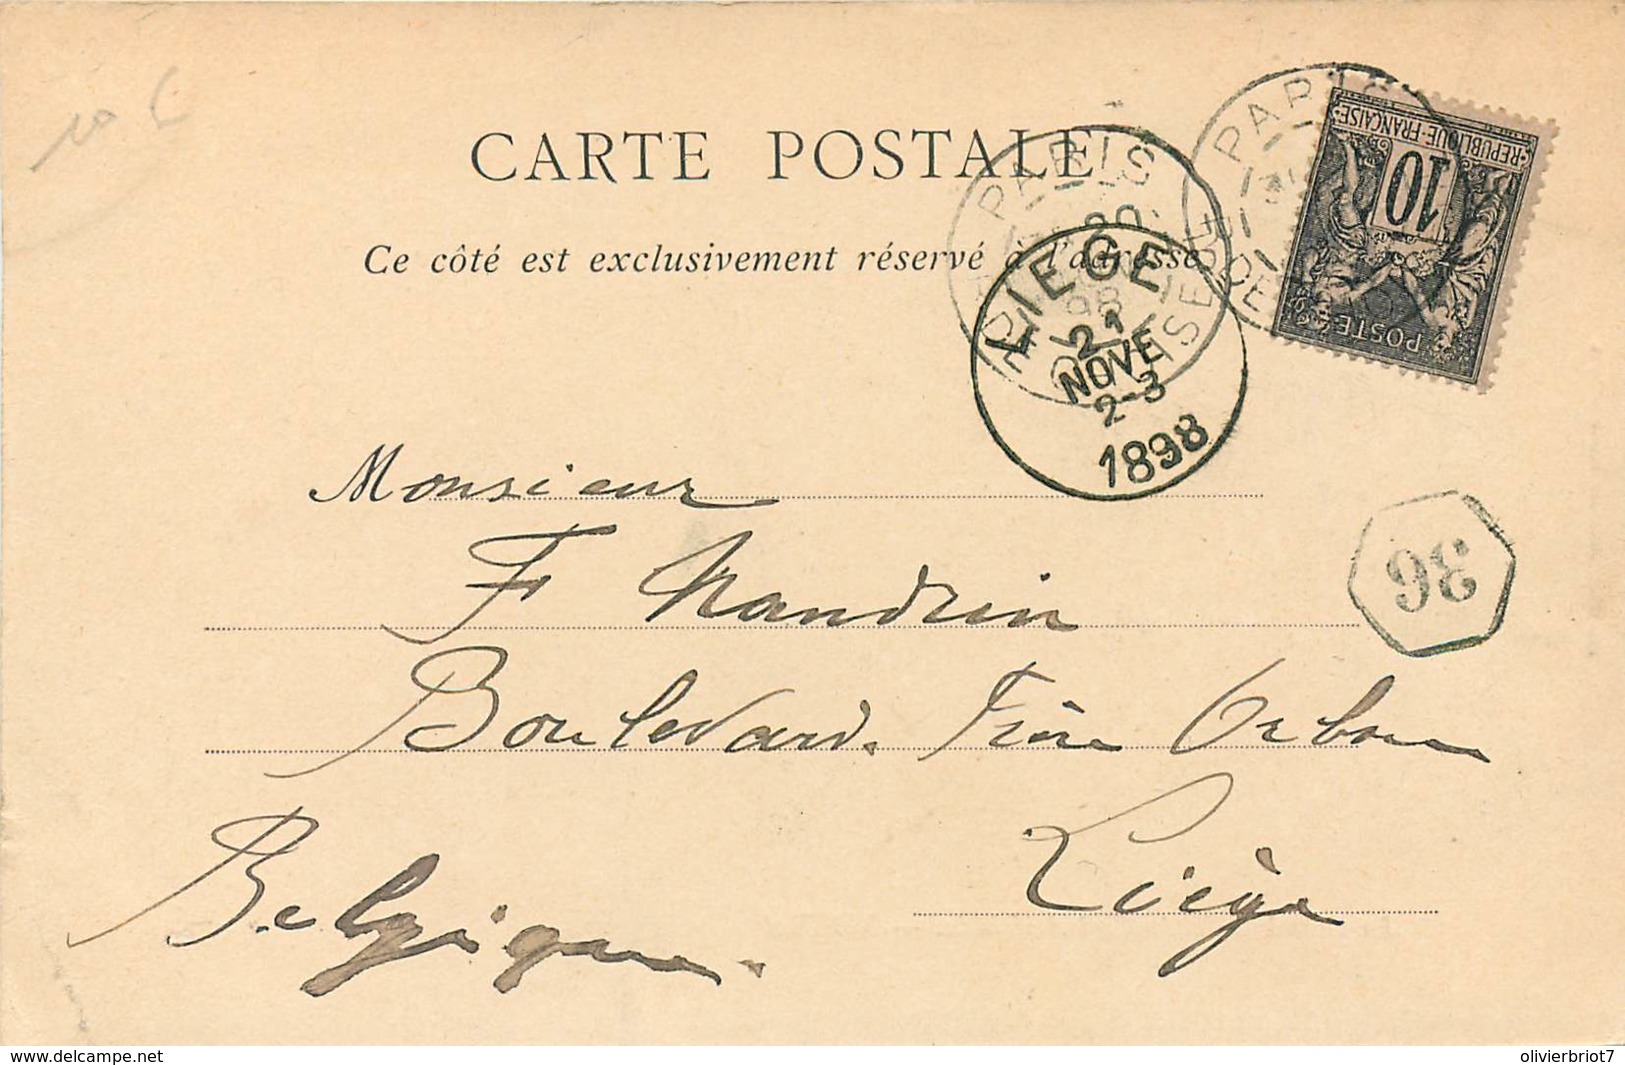 10 €
CARTE POSTALE
Ce côté est exclusivement réservé à l'adresse
PARIS
98
PARIS
RÉPUBLIQUE·FRANÇAISE
10
POSTES
LIEGE
21
NOVE
2-3
1898
36
Monsieur
F Nandrin
Boulevard. Frère Orban
Liège
Belgique.
www.delcampe.net
olivierbriot7